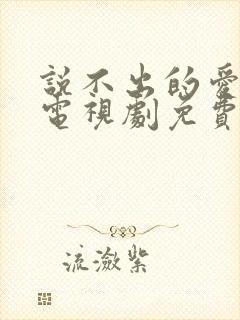 説不出的愛
電視劇免費
流瀲紫